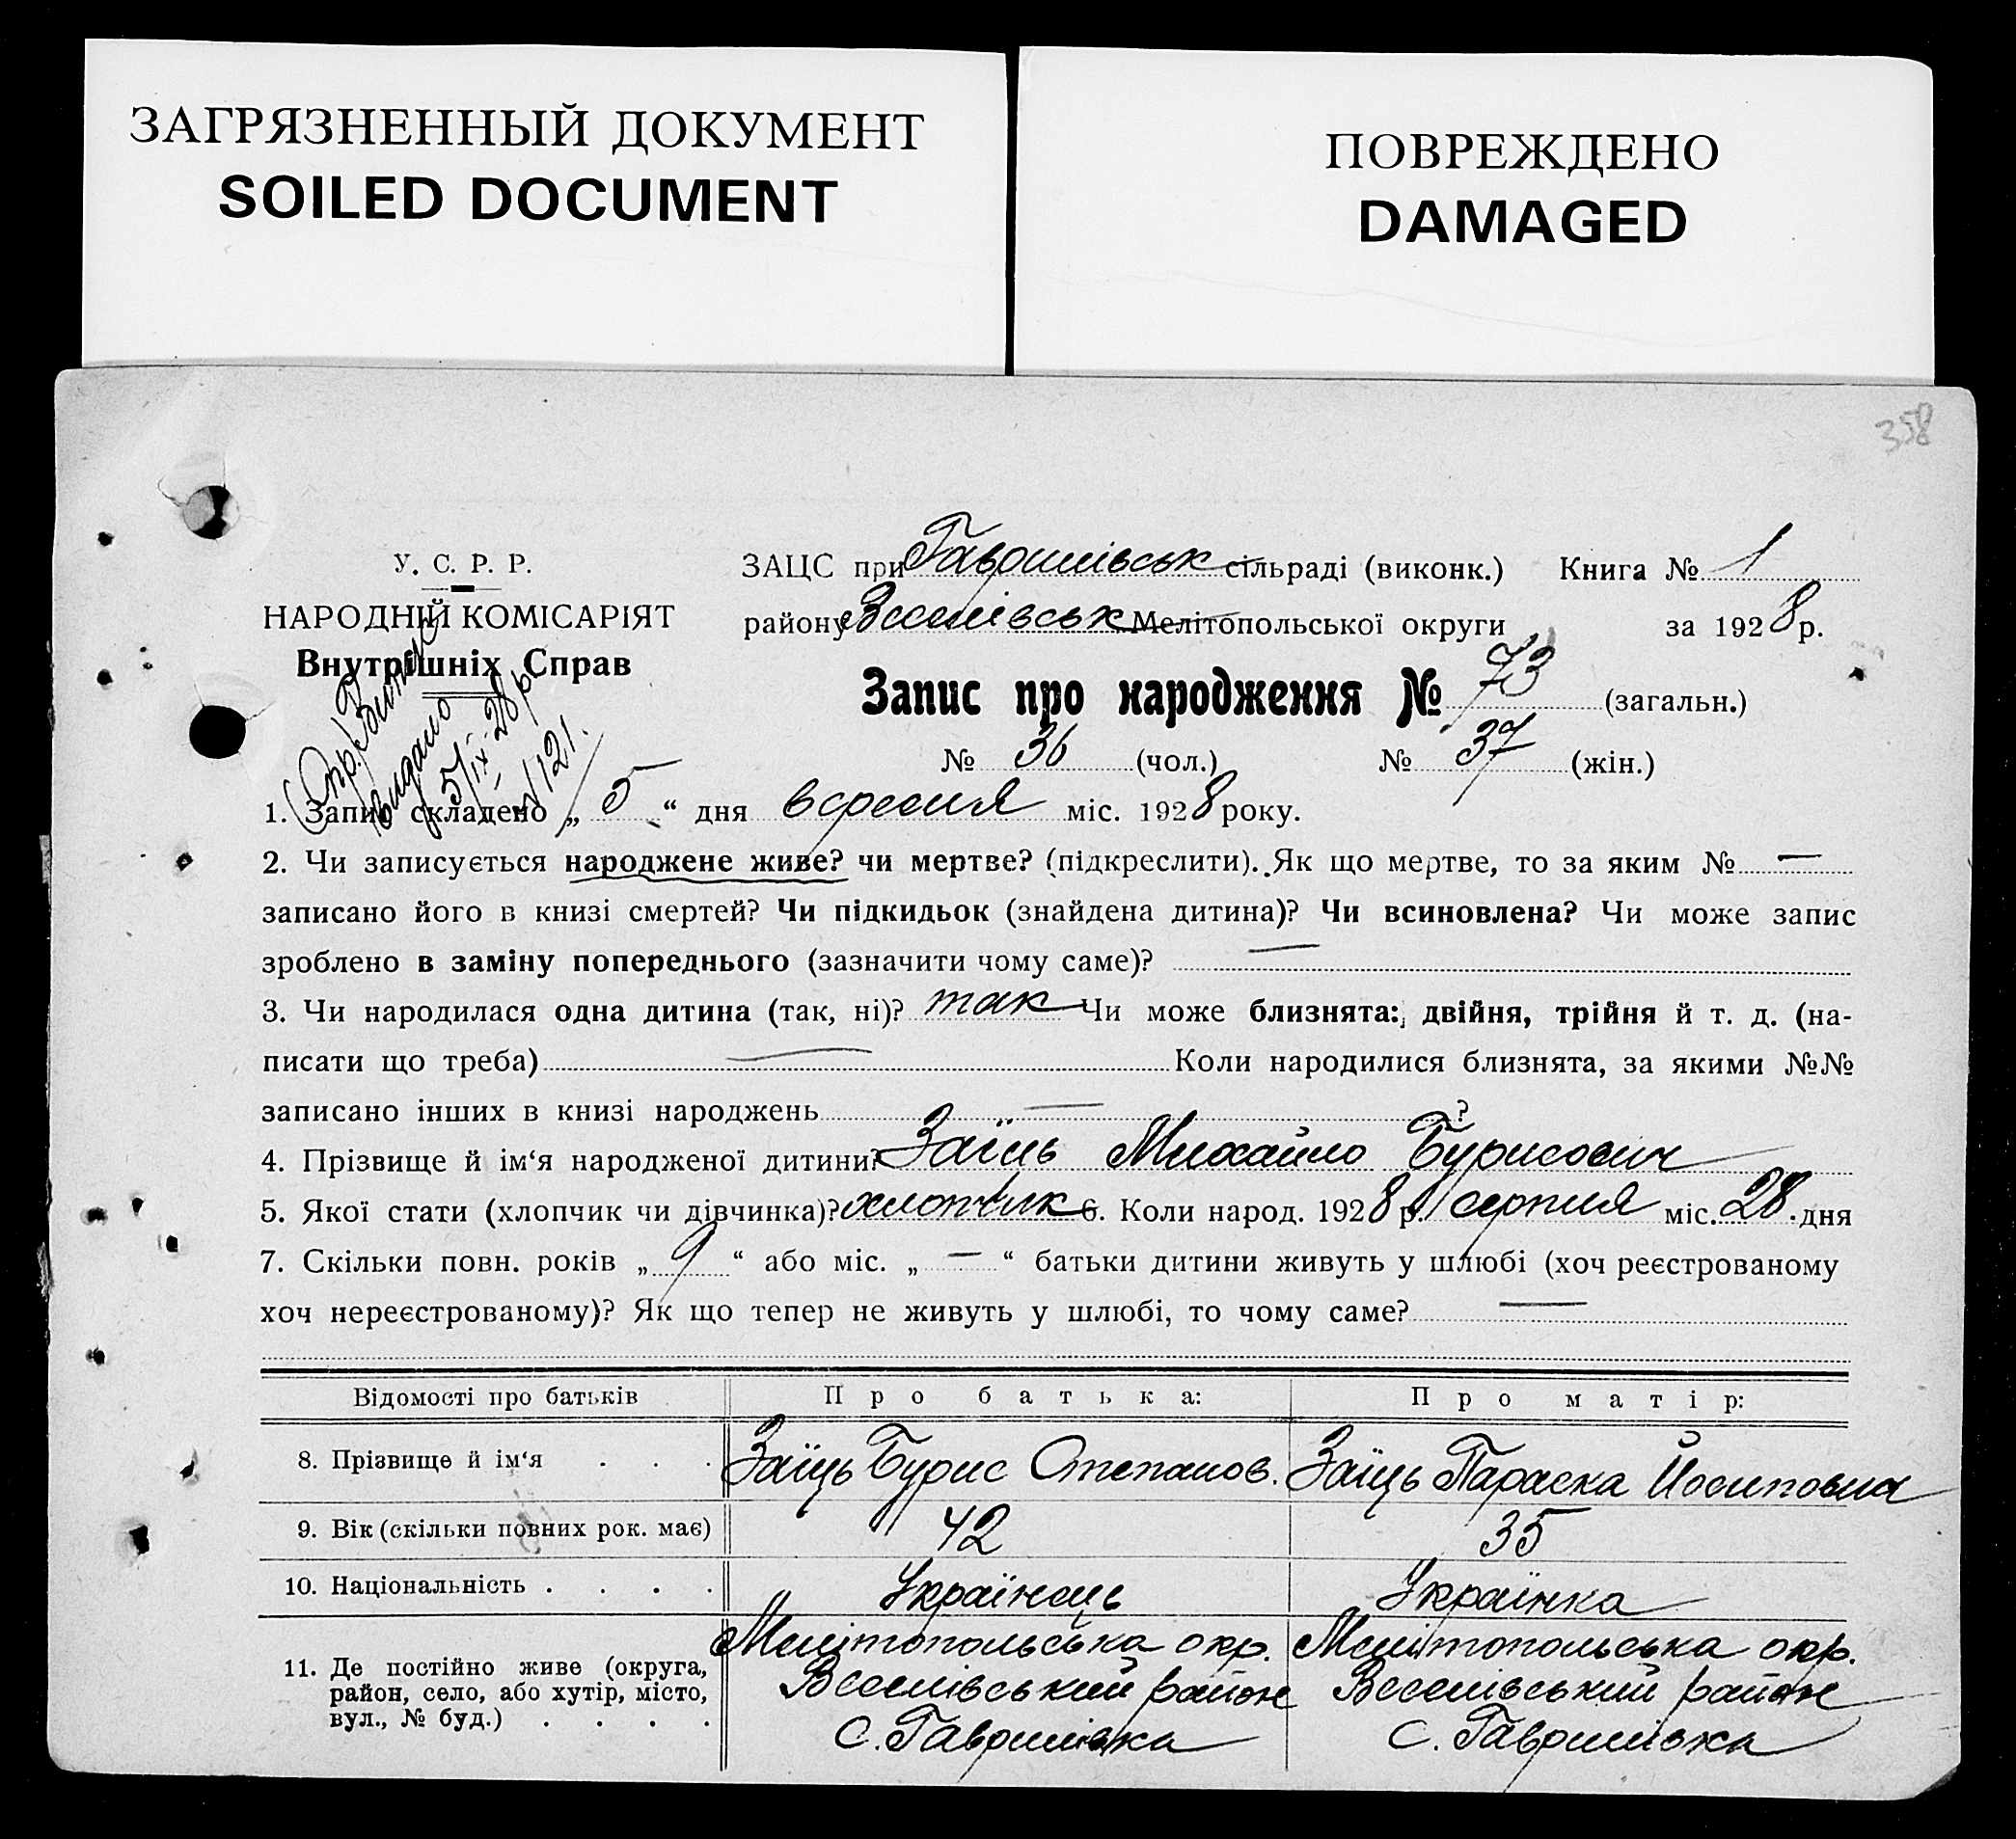 ЗАГРЯЗНЕННЫЙ ДОКУМЕНТ
SOILED DOCUMENT
ПОВРЕЖДЕНО
DAMAGED
358
У. С. Р. Р.
НАРОДНІЙ КОМІСАРІЯТ
Внутрішніх Справ
видано
5/IX-28 р.
121.
ЗАЦС при Гаврилівськ сільраді (виконк.) Книга № 1
району Веселівськ Мелітопольської округи за 1928 р.
Запис про народження № 73 (загальн.)
№ 36 (чол.) № 37 (жін.)
1. Запис складено „ 5 “ дня вересня міс. 1928 року.
2. Чи записується народжене живе? чи мертве? (підкреслити). Як що мертве, то за яким № —
записано його в книзі смертей? Чи підкидьок (знайдена дитина)? Чи всиновлена? Чи може запис
зроблено в заміну попереднього (зазначити чому саме)? —
3. Чи народилася одна дитина (так, ні)? так Чи може близнята: двійня, трійня й т. д. (на-
писати що треба) — Коли народилися близнята, за якими №№
записано інших в книзі народжень — ?
4. Прізвище й ім‘я народженої дитини? Заїць Михайло Бурисович
5. Якої стати (хлопчик чи дівчинка)? хлопчик 6. Коли народ. 1928 р. серпня міс. 28 дня
7. Скільки повн. років „ 9 “ або міс. „ — “ батьки дитини живуть у шлюбі (хоч реєстрованому
хоч нереєстрованому)? Як що тепер не живуть у шлюбі, то чому саме? —
Відомості про батьків Про батька: Про матір:
8. Прізвище й ім‘я . . . Заїць Бурис Степанов. Заїць Параска Йосиповна
9. Вік (скільки повних рок. має) 42 35
10. Національність . . . . Українець Українка
11. Де постійно живе (округа, район, село, або хутір, місто, вул., № буд.) . . . .
Мелітопольська окр. Мелітопольська окр.
Веселівський район Веселівський район
с. Гаврилівка с. Гаврилівка